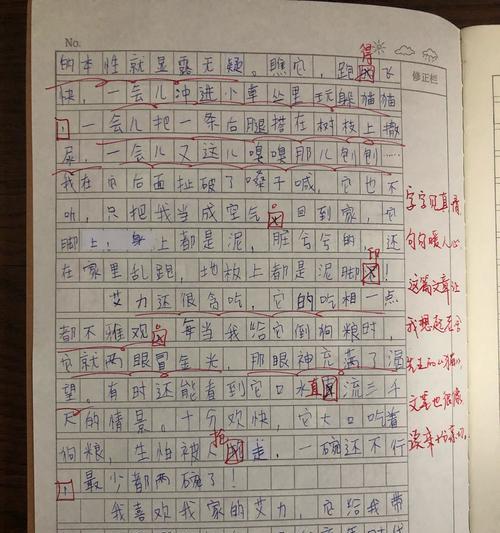 No.
修正栏
得
的本性就显露无疑。瞧它，跑飞
快，一会儿冲进小草丛里玩躲猫猫
，一会儿把一条后腿搭在树枝上撒
尿，一会儿又这儿嗅嗅那儿刨刨……
我在它后面扯破了嗓子喊，它也不
听，只把我当成空气。回到家，它
脚上，身上都是泥，脏兮兮的，还
印
在家里乱跑，地板上都是泥脚！
艾力还很贪吃，它的吃相一点
都不雅观。每当我给它倒狗粮时，
它就两眼冒金光，那眼神充满了渴
望。有时还能看到它口水直流三千
尺的情景。十分欢快，它大口吃着
抢
狗粮，生怕被人走，一碗还不行
，最少都两碗了！
我喜欢我家的艾力，它给我带
字字见真情
句句暖人心
这篇文章让
我想起老舍
先生的《猫》
文笔也很像
读来十分亲切。